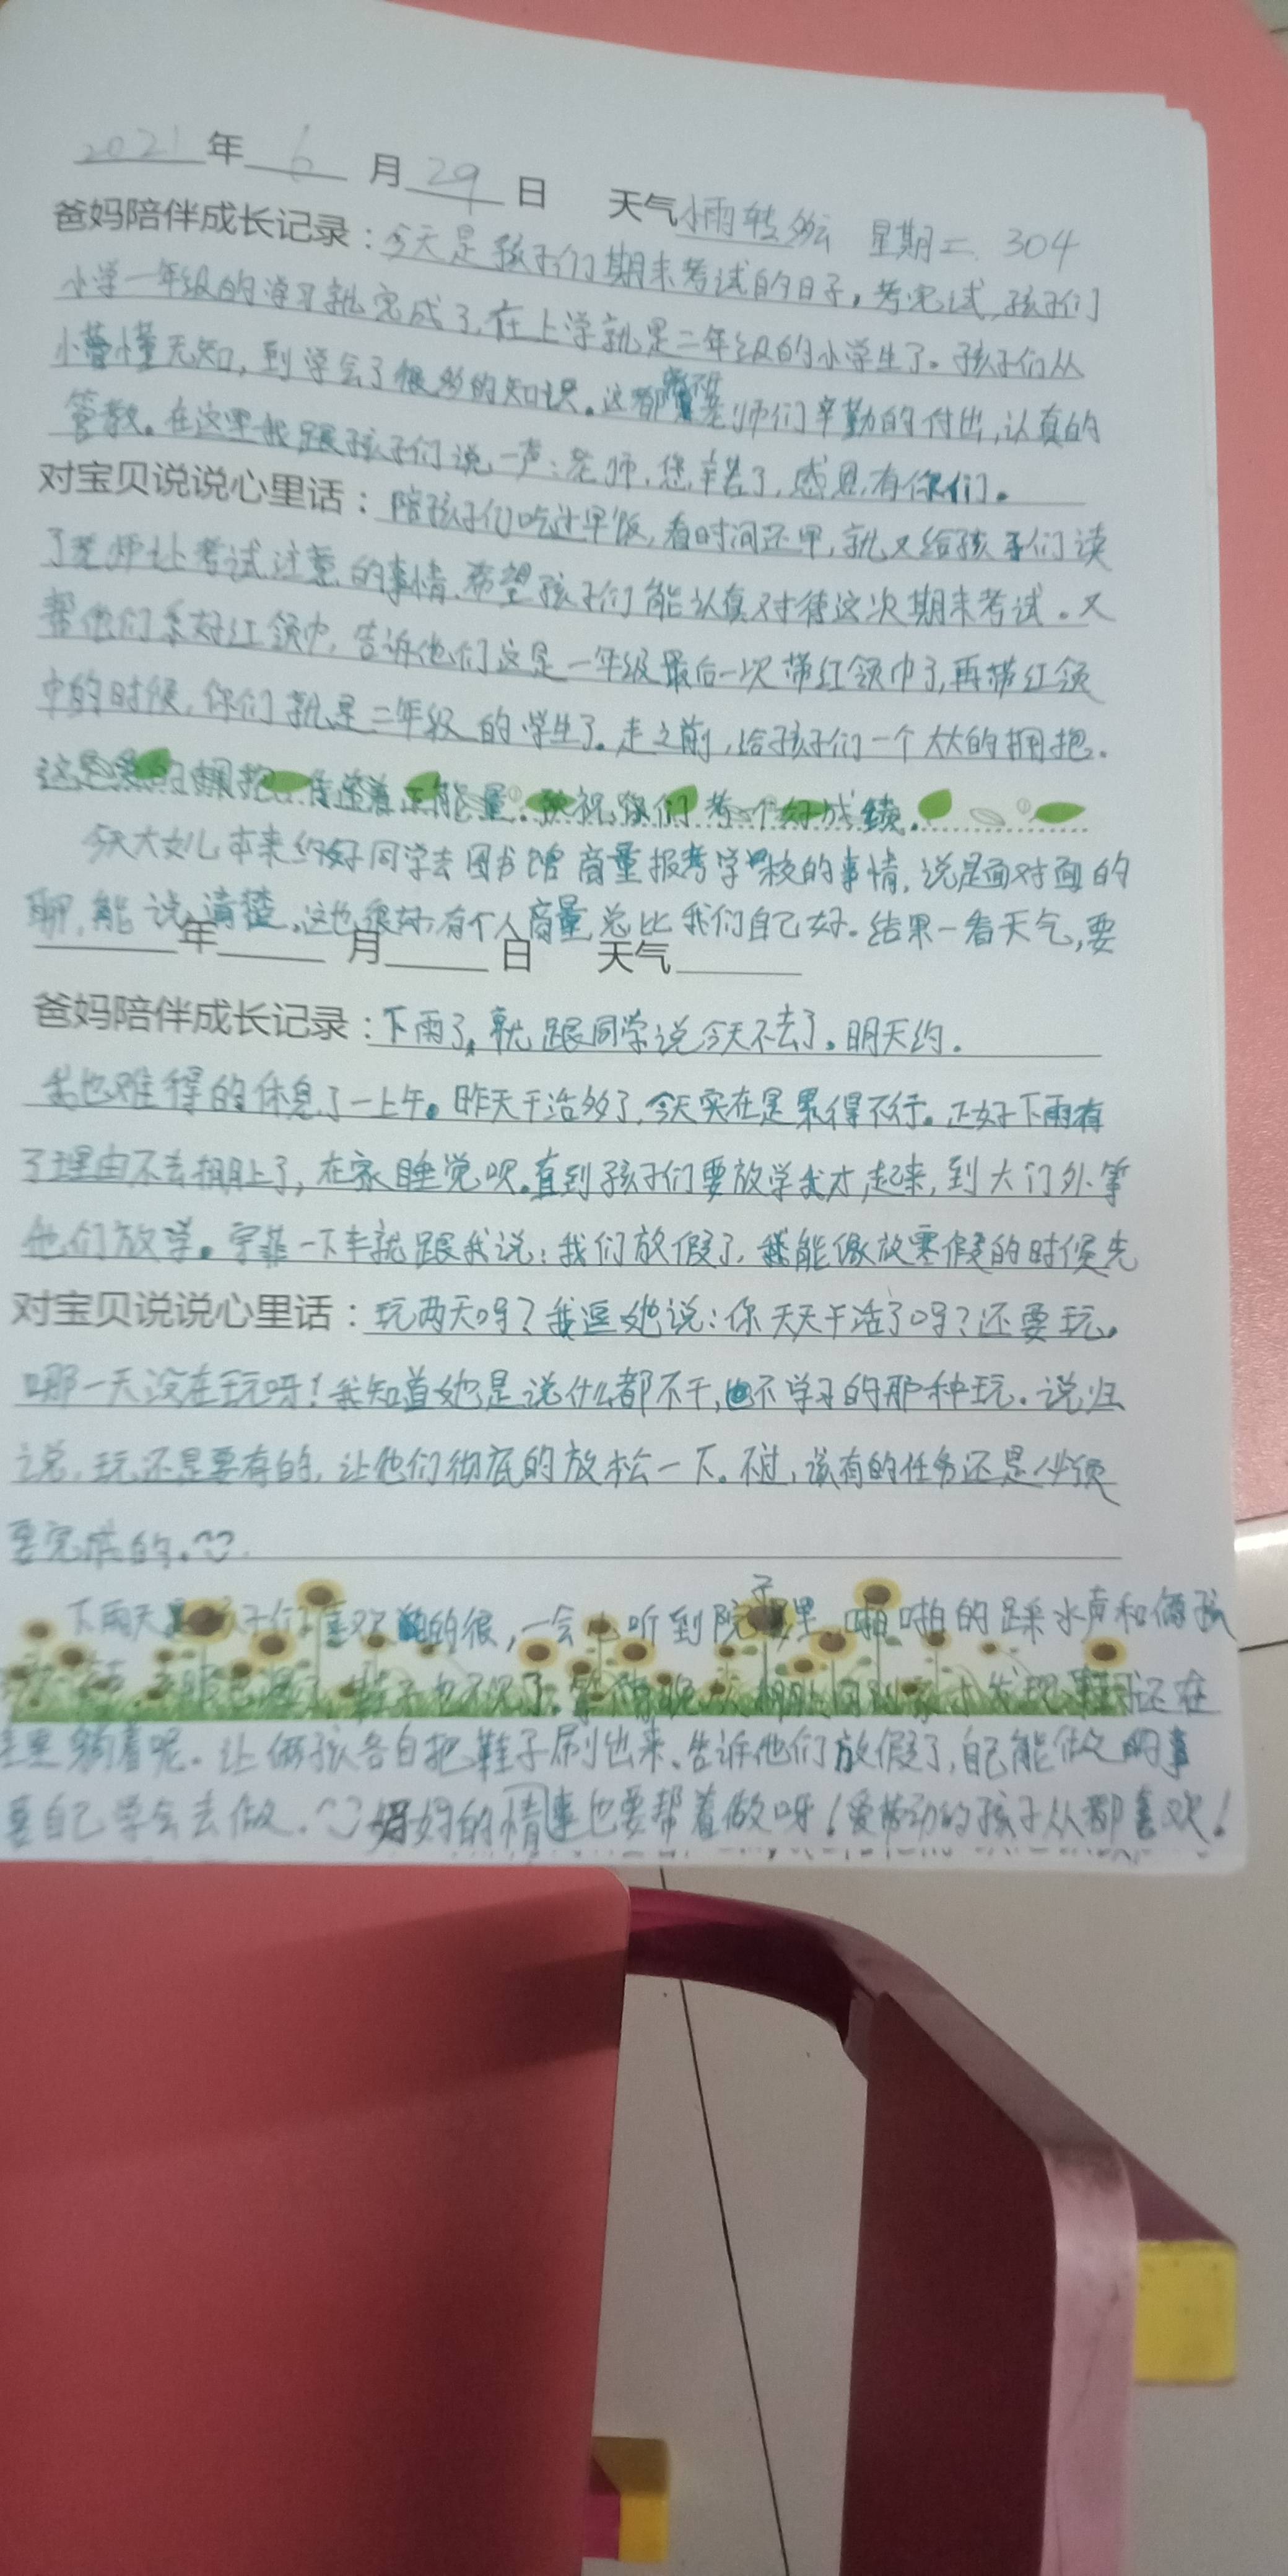 2021年6月29日 天气小雨转多云 星期二. 304
爸妈陪伴成长记录：今天是孩子们期末考试的日子，考完试，孩子们
小学一年级的学习就完成了，在上学就是二年级的小学生了。孩子们从
小懵懂无知，到学会了很多的知识。这都 老师们辛勤的付出，认真的
管教。在这里我跟孩子们说一声：老师，您辛苦了，感恩有你们。
对宝贝说说心里话：陪孩子们吃过早饭，看时间还早，就又给孩子们读
了老师让考试注意的事情，希望孩子们能认真对待这次期末考试。又
帮他们系好红领巾，告诉他们这是一年级最后一次带红领巾了，再带红领
巾的时候，你们就是二年级的学生了。走之前，给孩子们一个大大的拥抱。
这是爱的拥抱，传递着正能量。预祝孩们考一个好成绩。
今天大女儿本来约好同学去图书馆商量报考学校的事情，说是面对面的
聊，能说清楚。这也很好，有个人商量总比我们自己好。结果一看天气，要
年 月 日 天气
爸妈陪伴成长记录：下雨了，就跟同学说今天不去了。明天约。
我也难得的休息了一上午。昨天干活多了，今天实在是累得不行。正好下雨有
了理由不去棚上了，在家睡觉呗。直到孩子们要放学我才起来，到大门外等
他们放学。宇菲一下车就跟我说：我们放假了，我能像放寒假的时候先
对宝贝说说心里话：玩两天吗？我逗她说：你天天干活了吗？还要玩。
哪一天没在玩呀！我知道她是说什么都不干，也不学习的那种玩。说归
说，玩还是要有的，让他们彻底的放松一下。不过，该有的任务还是必须
要完成的。
下雨天 孩子们喜欢 的很，一会 听到院子里 啪啪的踩水声和俩孩
了，鞋子也 了。等 晚 棚上回到家才发现鞋子还在
里躺着呢。让俩孩各自把鞋子刷出来，告诉他们放假了，自己能做的事
要自己学会去做。妈妈的事情也要帮着做呀！爱劳动的孩子人都喜欢！